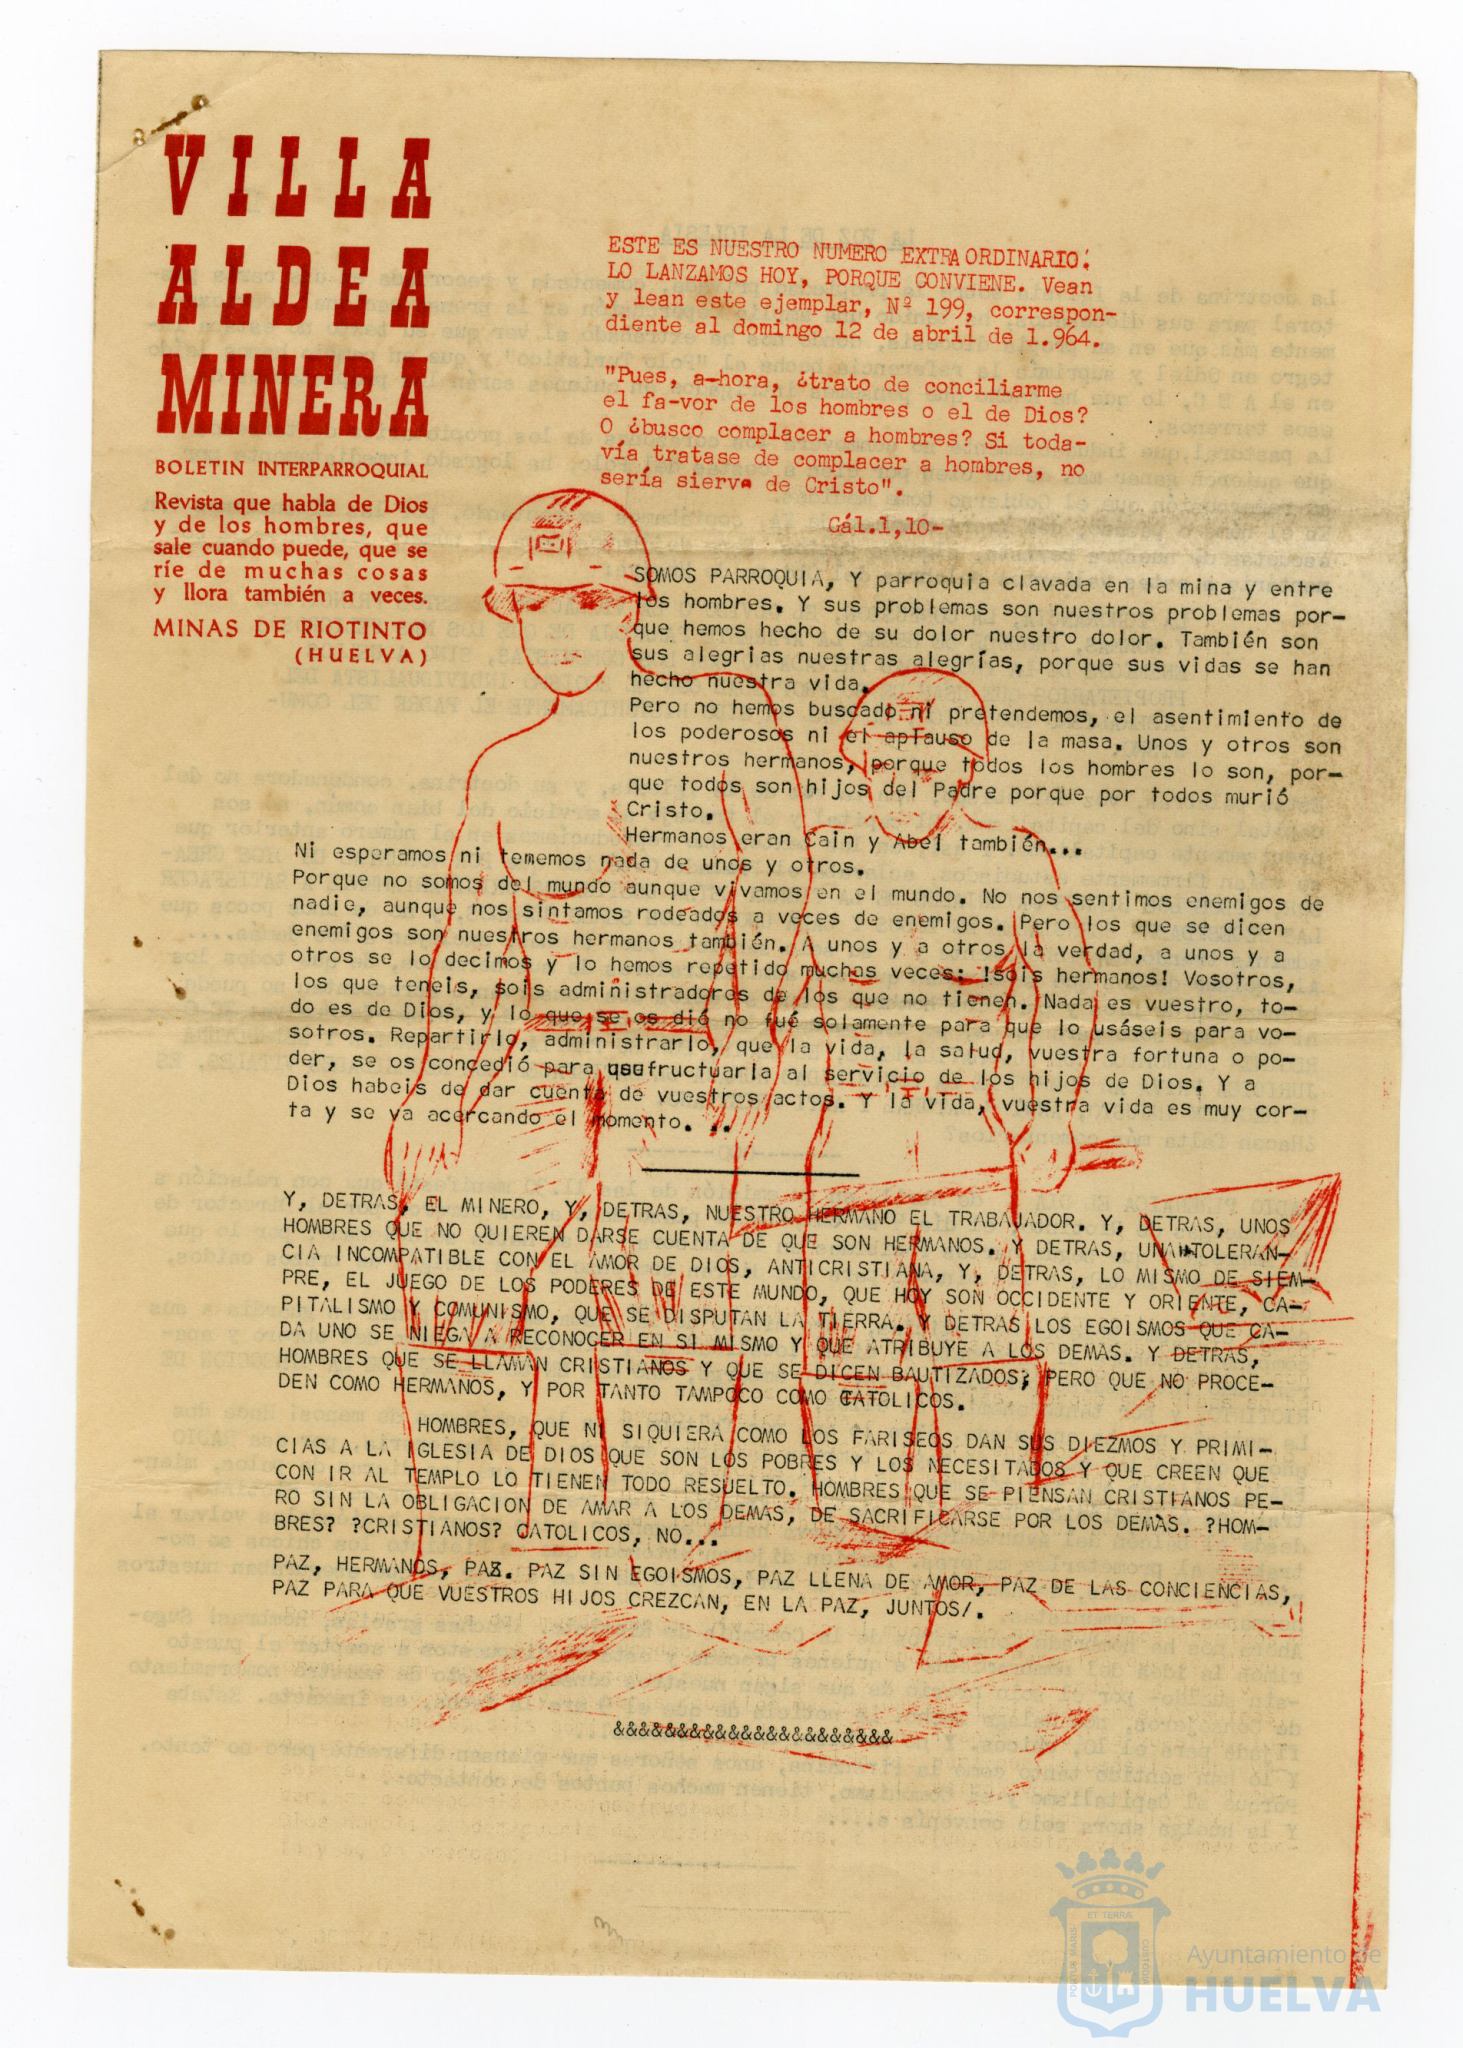 VILLA
ALDEA
MINERA
BOLETIN INTERPARROQUIAL
Revista que habla de Dios
y de los hombres, que
sale cuando puede, que se
ríe de muchas cosas
y llora también a veces.
MINAS DE RIOTINTO
(HUELVA)
ESTE ES NUESTRO NUMERO EXTRAORDINARIO.
LO LANZAMOS HOY, PORQUE CONVIENE. Vean
y lean este ejemplar, Nº 199, correspon-
diente al domingo 12 de abril de 1.964.
"Pues, a-hora, ¿trato de conciliarme
el fa-vor de los hombres o el de Dios?
O ¿busco complacer a hombres? Si toda-
vía tratase de complacer a hombres, no
sería siervo de Cristo".
Gál.1,10-
SOMOS PARROQUIA, Y parroquia clavada en la mina y entre
los hombres. Y sus problemas son nuestros problemas por-
que hemos hecho de su dolor nuestro dolor. También son
sus alegrias nuestras alegrías, porque sus vidas se han
hecho nuestra vida.
Pero no hemos buscado ni pretendemos, el asentimiento de
los poderosos ni el aplauso de la masa. Unos y otros son
nuestros hermanos, porque todos los hombres lo son, por-
que todos son hijos del Padre porque por todos murió
Cristo.
Hermanos eran Cain y Abel también...
Ni esperamos ni tememos nada de unos y otros.
Porque no somos del mundo aunque vivamos en el mundo. No nos sentimos enemigos de
nadie, aunque nos sintamos rodeados a veces de enemigos. Pero los que se dicen
enemigos son nuestros hermanos también. A unos y a otros la verdad, a unos y a
otros se lo decimos y lo hemos repetido muchas veces: !sois hermanos! Vosotros,
los que teneis, sois administradores de los que no tienen. Nada es vuestro, to-
do es de Dios, y lo que se os dió no fué solamente para que lo usáseis para vo-
sotros. Repartirlo, administrarlo, que la vida, la salud, vuestra fortuna o po-
der, se os concedió para usufructuarla al servicio de los hijos de Dios. Y a
Dios habeis de dar cuenta de vuestros actos. Y la vida, vuestra vida es muy cor-
ta y se va acercando el momento. ..
Y, DETRAS, EL MINERO, Y, DETRAS, NUESTRO HERMANO EL TRABAJADOR. Y, DETRAS, UNOS
HOMBRES QUE NO QUIEREN DARSE CUENTA DE QUE SON HERMANOS. Y DETRAS, UNA INTOLERAN-
CIA INCOMPATIBLE CON EL AMOR DE DIOS, ANTICRISTIANA, Y, DETRAS, LO MISMO DE SIEM-
PRE, EL JUEGO DE LOS PODERES DE ESTE MUNDO, QUE HOY SON OCCIDENTE Y ORIENTE, CA-
PITALISMO Y COMUNISMO, QUE SE DISPUTAN LA TIERRA. Y DETRAS LOS EGOISMOS QUE CA-
DA UNO SE NIEGA A RECONOCER EN SI MISMO Y QUE ATRIBUYE A LOS DEMAS. Y DETRAS,
HOMBRES QUE SE LLAMAN CRISTIANOS Y QUE SE DICEN BAUTIZADOS; PERO QUE NO PROCE-
DEN COMO HERMANOS, Y POR TANTO TAMPOCO COMO CATOLICOS.
HOMBRES, QUE NI SIQUIERA COMO LOS FARISEOS DAN SUS DIEZMOS Y PRIMI-
CIAS A LA IGLESIA DE DIOS QUE SON LOS POBRES Y LOS NECESITADOS Y QUE CREEN QUE
CON IR AL TEMPLO LO TIENEN TODO RESUELTO. HOMBRES QUE SE PIENSAN CRISTIANOS PE-
RO SIN LA OBLIGACION DE AMAR A LOS DEMAS, DE SACRIFICARSE POR LOS DEMAS. ?HOM-
BRES? ?CRISTIANOS? CATOLICOS, NO...
PAZ, HERMANOS, PAZ. PAZ SIN EGOISMOS, PAZ LLENA DE AMOR, PAZ DE LAS CONCIENCIAS,
PAZ PARA QUE VUESTROS HIJOS CREZCAN, EN LA PAZ, JUNTOS/.
&&&&&&&&&&&&&&&&&&&&&&
Ayuntamiento de
HUELVA